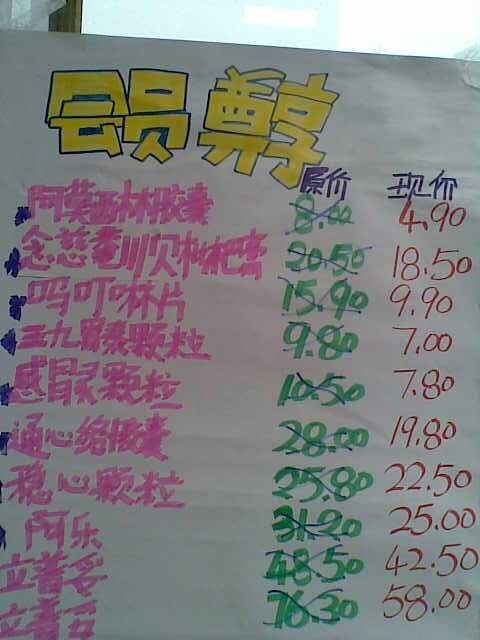 会员尊享
原价 现价
阿莫西林胶囊 8.00 4.90
念慈菴川贝枇杷膏 20.50 18.50
吗叮啉片 15.90 9.90
三九胃泰颗粒 9.80 7.00
感冒灵颗粒 10.50 7.80
通心络胶囊 28.00 19.80
稳心颗粒 25.80 22.50
阿乐 31.20 25.00
立普妥 48.50 42.50
立普妥 76.30 58.00